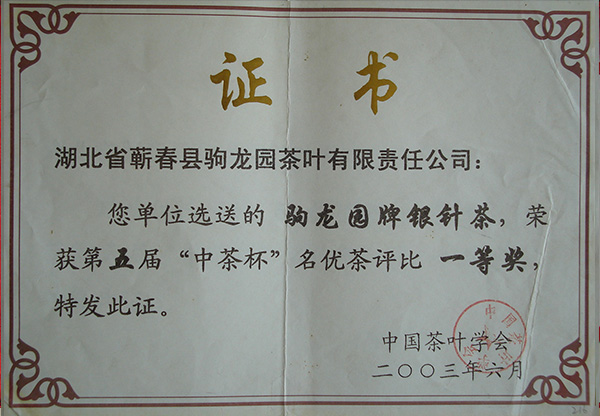 证书
湖北省蕲春县驹龙园茶叶有限责任公司：
您单位选送的 驹龙园牌银针茶，荣
获第五届“中茶杯”名优茶评比 一等奖，
特发此证。
中国茶叶学会
二〇〇三年六月